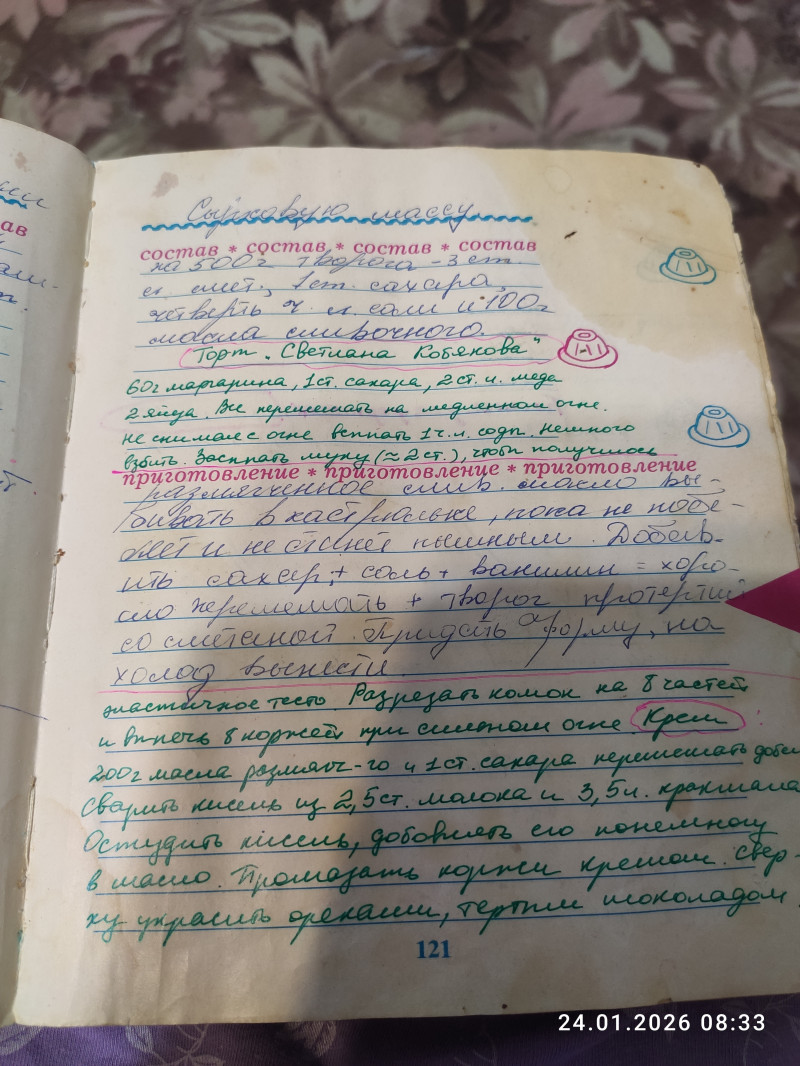 Сырковую массу
состав * состав * состав * состав
на 500г творога - 3 ст.
л. смет., 1 ст. сахара,
четверть ч. л. соли и 100г
масла сливочного
Торт "Светлана Кобякова"
60г маргарина, 1 ст. сахара, 2 ст. л. меда
2 яйца. Все перемешать на медленном огне.
Не снимая с огня всыпать 1 ч. л. соды. Немного
взбить. Засыпать муку (≈ 2 ст.), чтобы получилось
приготовление * приготовление * приготовление
размягченное слив. масло вы-
бивать в кастрюльке, пока не побе-
леет и не станет пышным. Добав-
ить сахар + соль + ванилин = хоро-
шо перемешать + творог протертый
со сметаной. Придать форму, на
холод вынести.
эластичное тесто. Разрезать комок на 8 частей
и выпечь 8 коржей при сильном огне. Крем
200г масла размягч-го и 1 ст. сахара перемешать добела
Сварить кисель из 2,5 ст. молока и 3,5 л. крахмала
Остудить кисель, добовлять его понемногу
в масло. Промазать коржи кремом. Свер-
ху украсить орехами, тертым шоколадом.
121
24.01.2026 08:33
ав